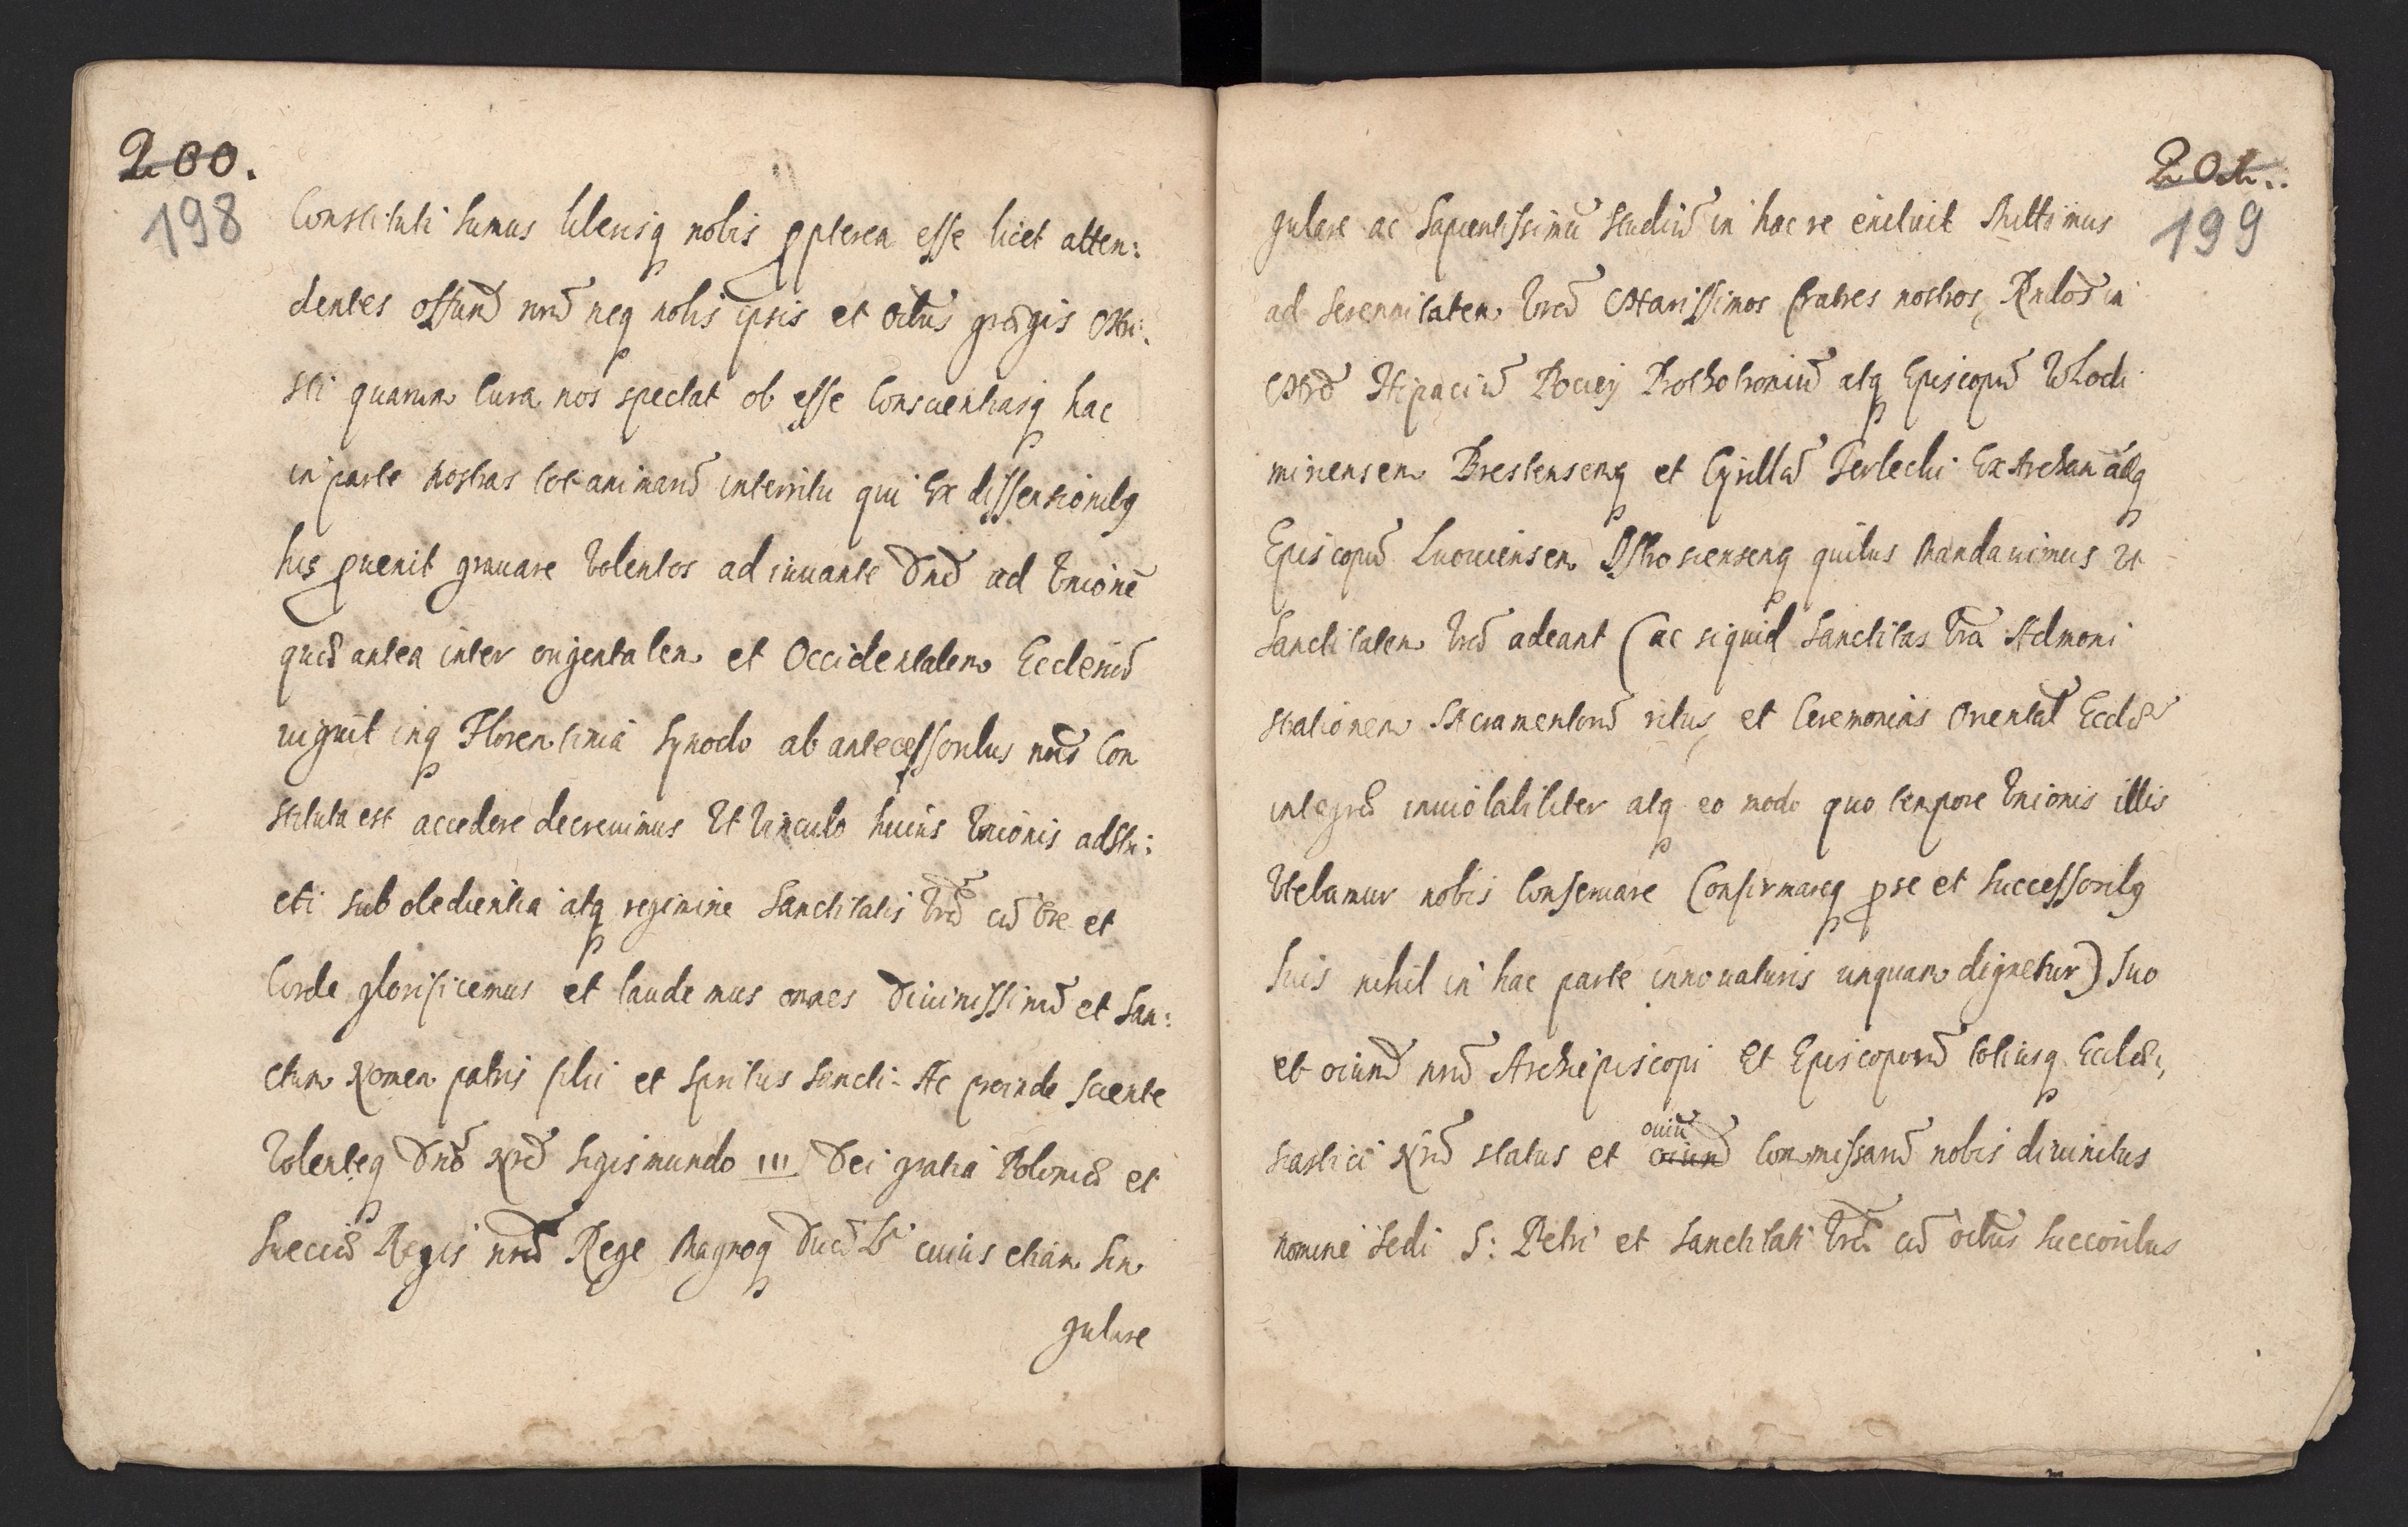 200.
198
Constituti sumus liberisq nobis ꝓpterea esse licet atten:
dentes offund nrũ neq nobis ipsis et oĩbus gregis Chri:
sti quarum Cura nos spectat ob esse Conscientiasq hac
in parte nostras tot animarũ interritu qui Ex dissensionibq
his ꝓuenit grauare Volentes ad iuuante Dnõ ad Unionẽ
quæ antea inter orjentalem et Occidentalem Ecclesiã
viguit inq Florentina Synodo ab antecessoribus nris Con
stituta est accedere decreuimus Ut Vinculo huius Unionis adstri:
cti sub obedientia atq regimine Sanctitatis Vræ cũ Ore et
Corde glorificemus et laudemus omnes Diuinissimũ et San:
ctum Nomen patris filii et Spritus Sancti: Ac proinde Sciente
Volenteq Dnõ Nrõ Sigismundo III Dei gratia Poloniæ et
Sueciæ Regis nrõ Rege Magnoq Ducẽ Lt cuius etiam Sin
gulare
201..
199
gulare ac Sapientissimũ Studiũ in hac re eniluit Mittimus
ad Serenitatem Vrã Charissimos fratres nostros, Rndos in
Chrõ Hipaciũ Pociej Prothothroniũ atq Episcopũ Wlodi
miriensem Brestensemq et Cyrillũ Terlecki Exarchan atq
Episcopũ Lucuiensem Ostrosiensemq quibus Mandauimus Ut
Sanctitatem Vrã adeant (ac siquid Sanctitas Vra Admoni
strationem Sacramentorũ ritus, et Ceremonias Oriental Eccles
integrè inuiolabiliter atq eo modo quo tempore Unionis illis
Utebamur nobis Conseruare Confirmareq ꝓ se et Successoribq
Suis nihil in hac parte innouaturis unquam dignetur) Suo
et oiunũ nrũ Archiepiscopi Et Episcoporũ totiusq Eccles,
siastici Nrĩ status et oiuũ ouiũ Commissarũ nobis diuinitus
nomine Sedi S: Petri et Sanctitati Vræ cũ oĩbus Succoribus